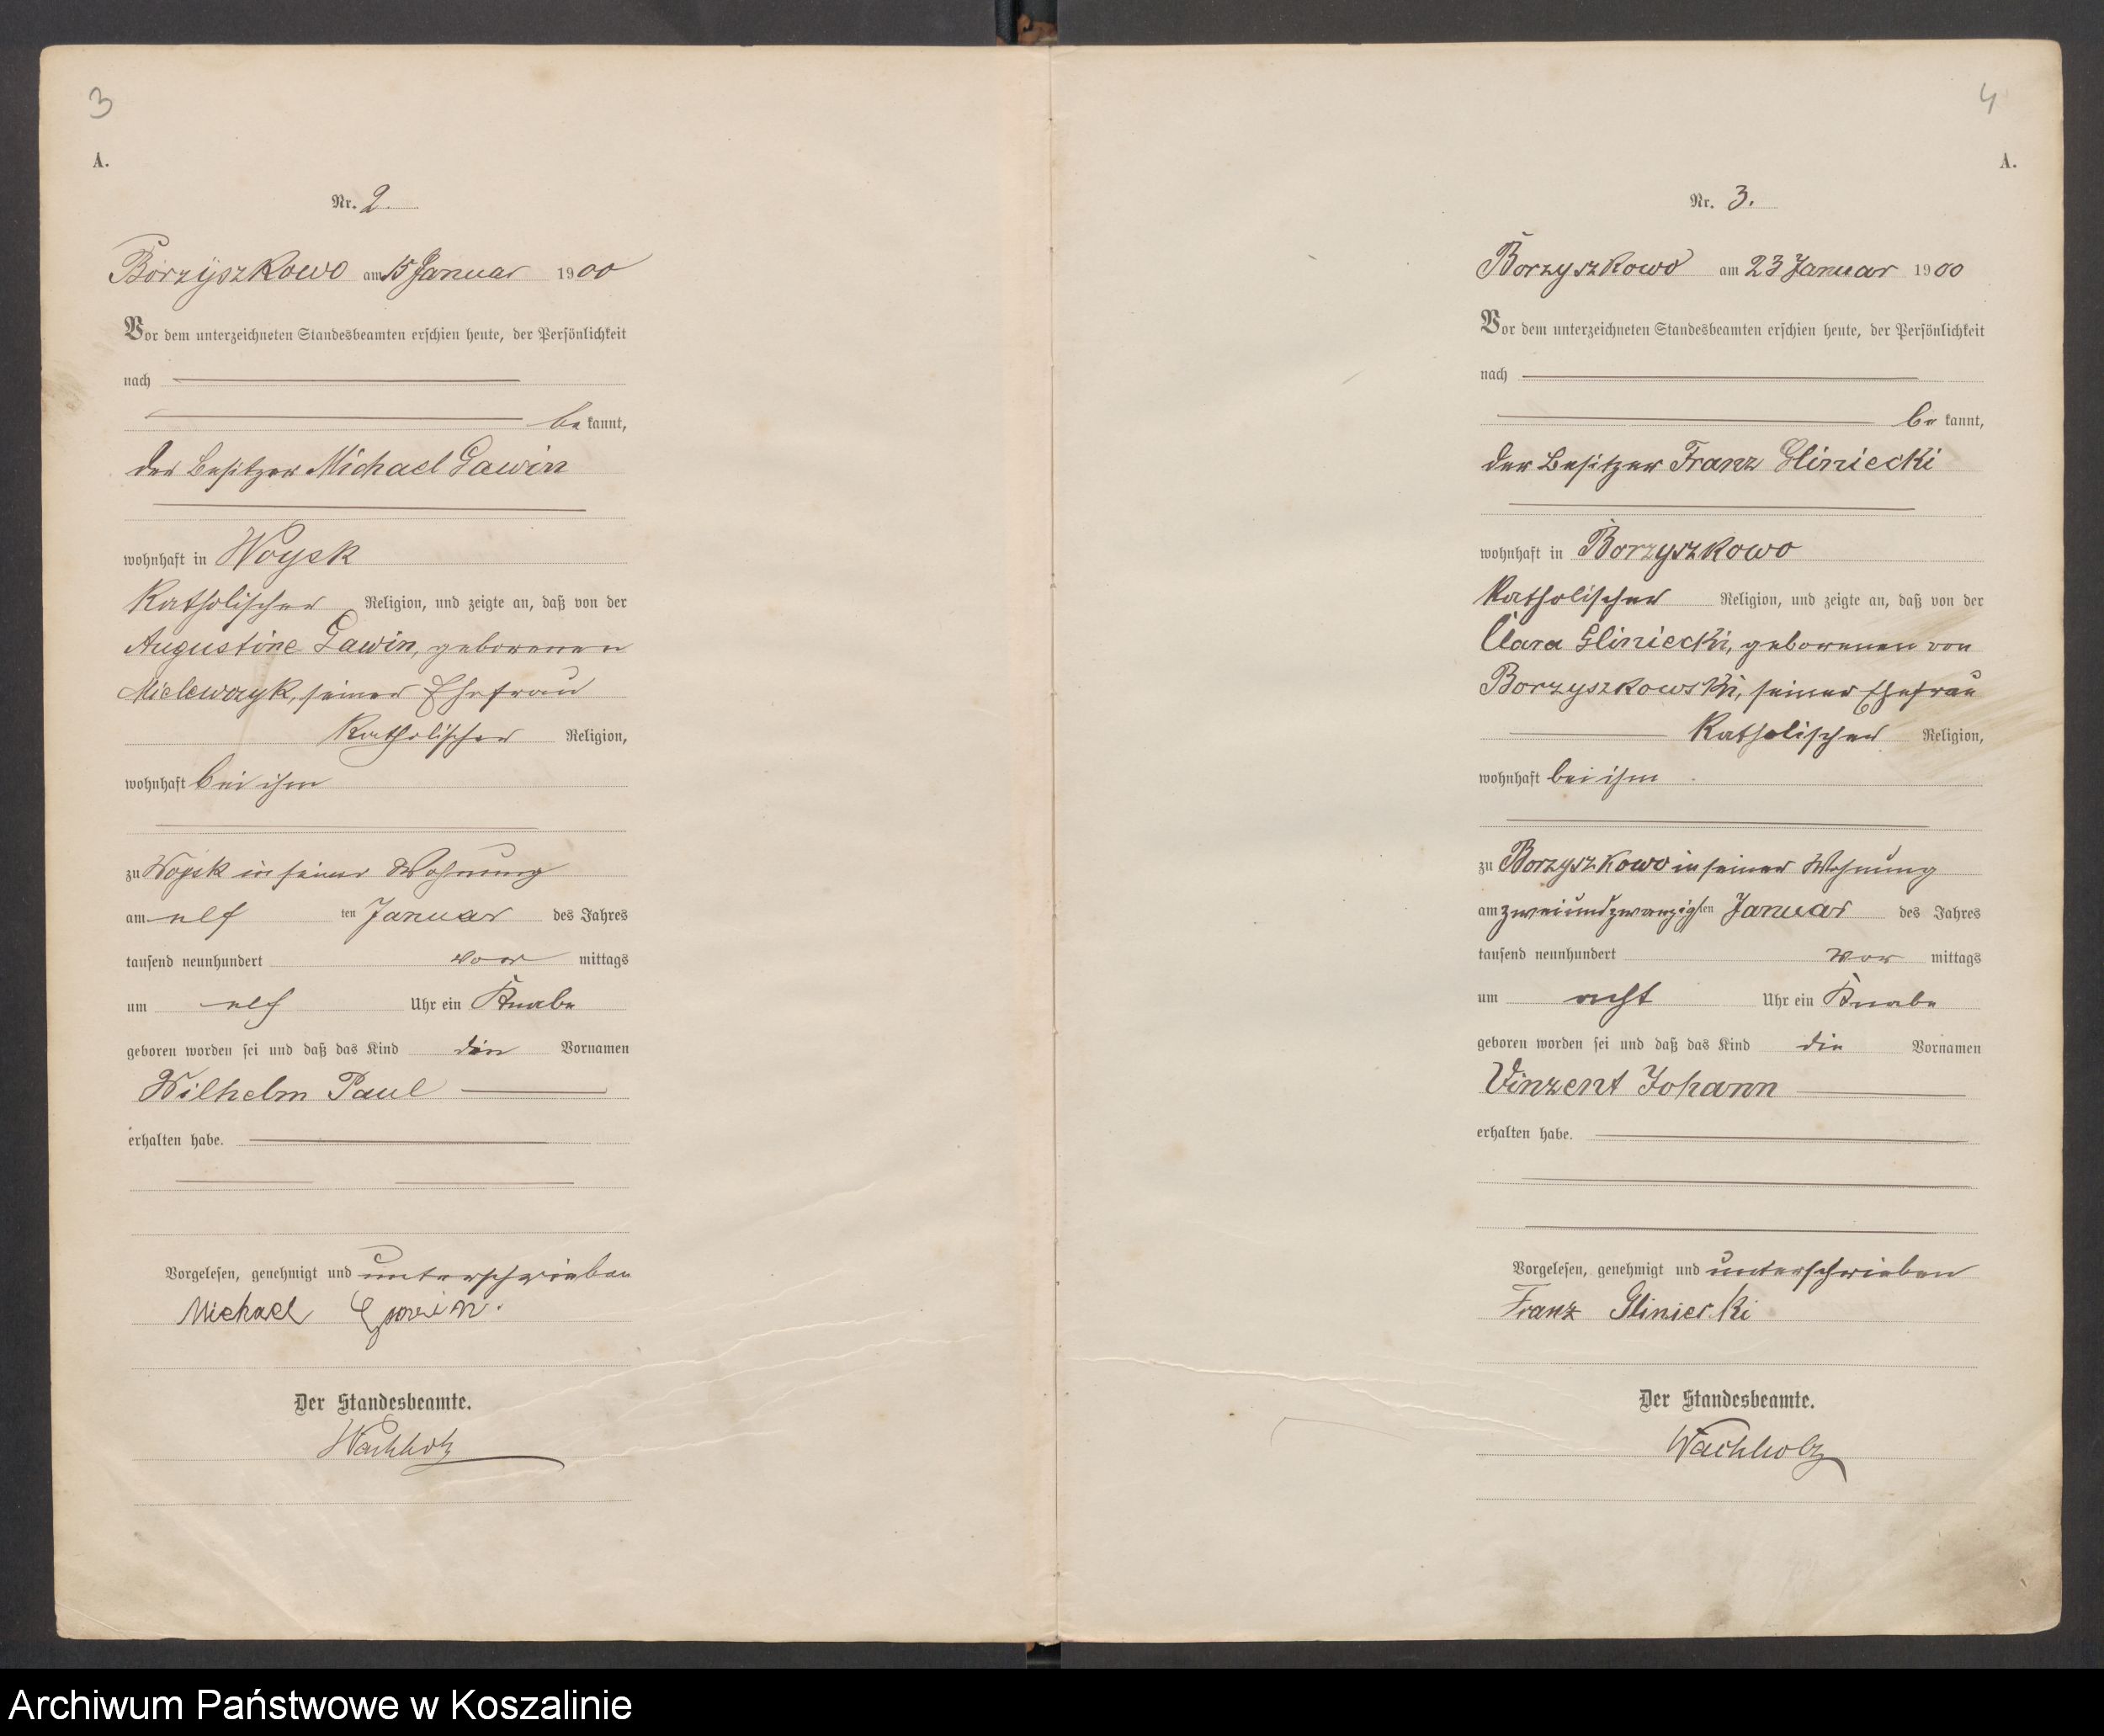 3
A.
Nr. 2.
Borzyszkowo am 15 Januar 1900
Vor dem unterzeichneten Standesbeamten erschien heute, der Persönlichkeit
nach
be kannt,
der Besitzer Michael Gawin
wohnhaft in Woysk
Katholischer Religion, und zeigte an, daß von der
Augustine Gawin, geborenen
Mielewczyk, seiner Ehefrau
Katholischer Religion,
wohnhaft bei ihm
zu Woysk in seiner Wohnung
am elf ten Januar des Jahres
tausend neunhundert vor mittags
um elf Uhr ein Knabe
geboren worden sei und daß das Kind die Vornamen
Wilhelm Paul
erhalten habe.
Vorgelesen, genehmigt und unterschrieben
Michael Gawin.
Der Standesbeamte.
Wachholz
4
A.
Nr. 3.
Borzyszkowo am 23 Januar 1900
Vor dem unterzeichneten Standesbeamten erschien heute, der Persönlichkeit
nach
be kannt,
der Besitzer Franz Gliniecki
wohnhaft in Borzyszkowo
Katholischer Religion, und zeigte an, daß von der
Clara Gliniecki, geborenen von
Borzyszkowski, seiner Ehefrau
Katholischer Religion,
wohnhaft bei ihm
zu Borzyszkowo in seiner Wohnung
am zweiundzwanzigsten Januar des Jahres
tausend neunhundert vor mittags
um acht Uhr ein Knabe
geboren worden sei und daß das Kind die Vornamen
Vinzent Johann
erhalten habe.
Vorgelesen, genehmigt und unterschrieben
Franz Gliniecki
Der Standesbeamte.
Wachholz
Archiwum Państwowe w Koszalinie